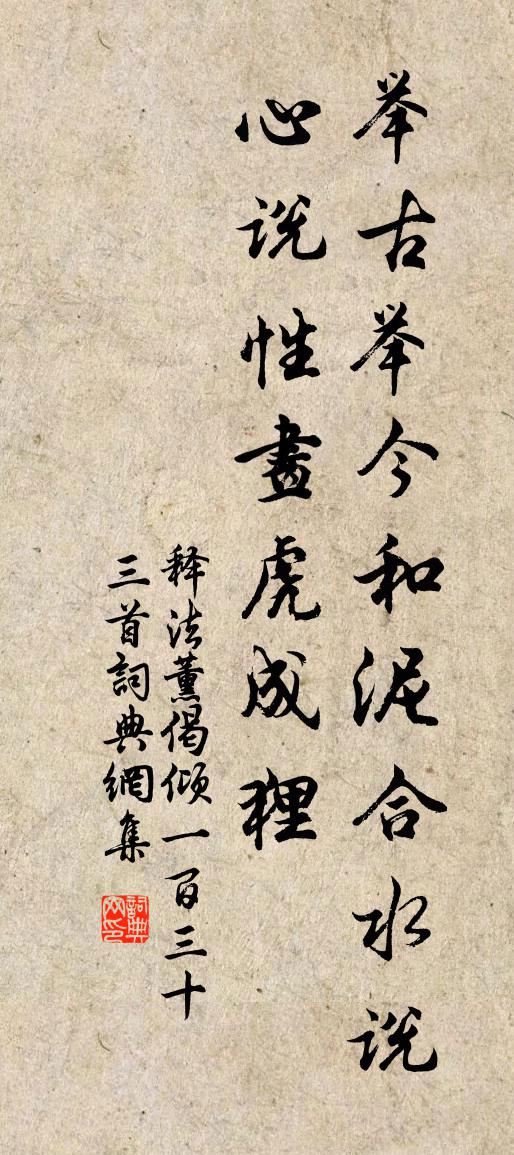 举古举今和泥合水说
心说性畫虎成狸
释法薰偈倾一百三十
三首詞典網集
詞典网印